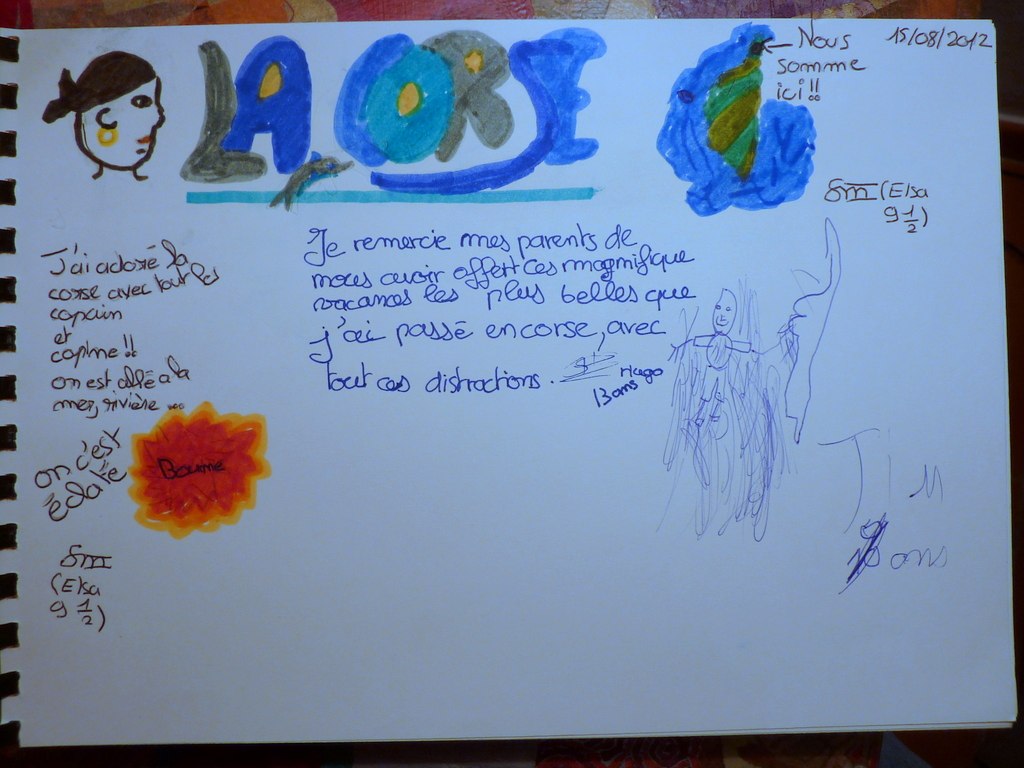 LA CORSE
Nous
somme
ici !!
15/08/2012
(Elsa
9 1/2)
J'ai adoré la
corse avec tout les
copain
et
copine !!
on est allé a la
mer, rivière ...
on c'est
éclaté
Boume
(Elsa
9 1/2)
Je remercie mes parents de
nous avoir offert ces magnifique
vacances les plus belles que
j'ai passé en corse, avec
tout ces distractions.
Hugo
13 ans
TIM
ans